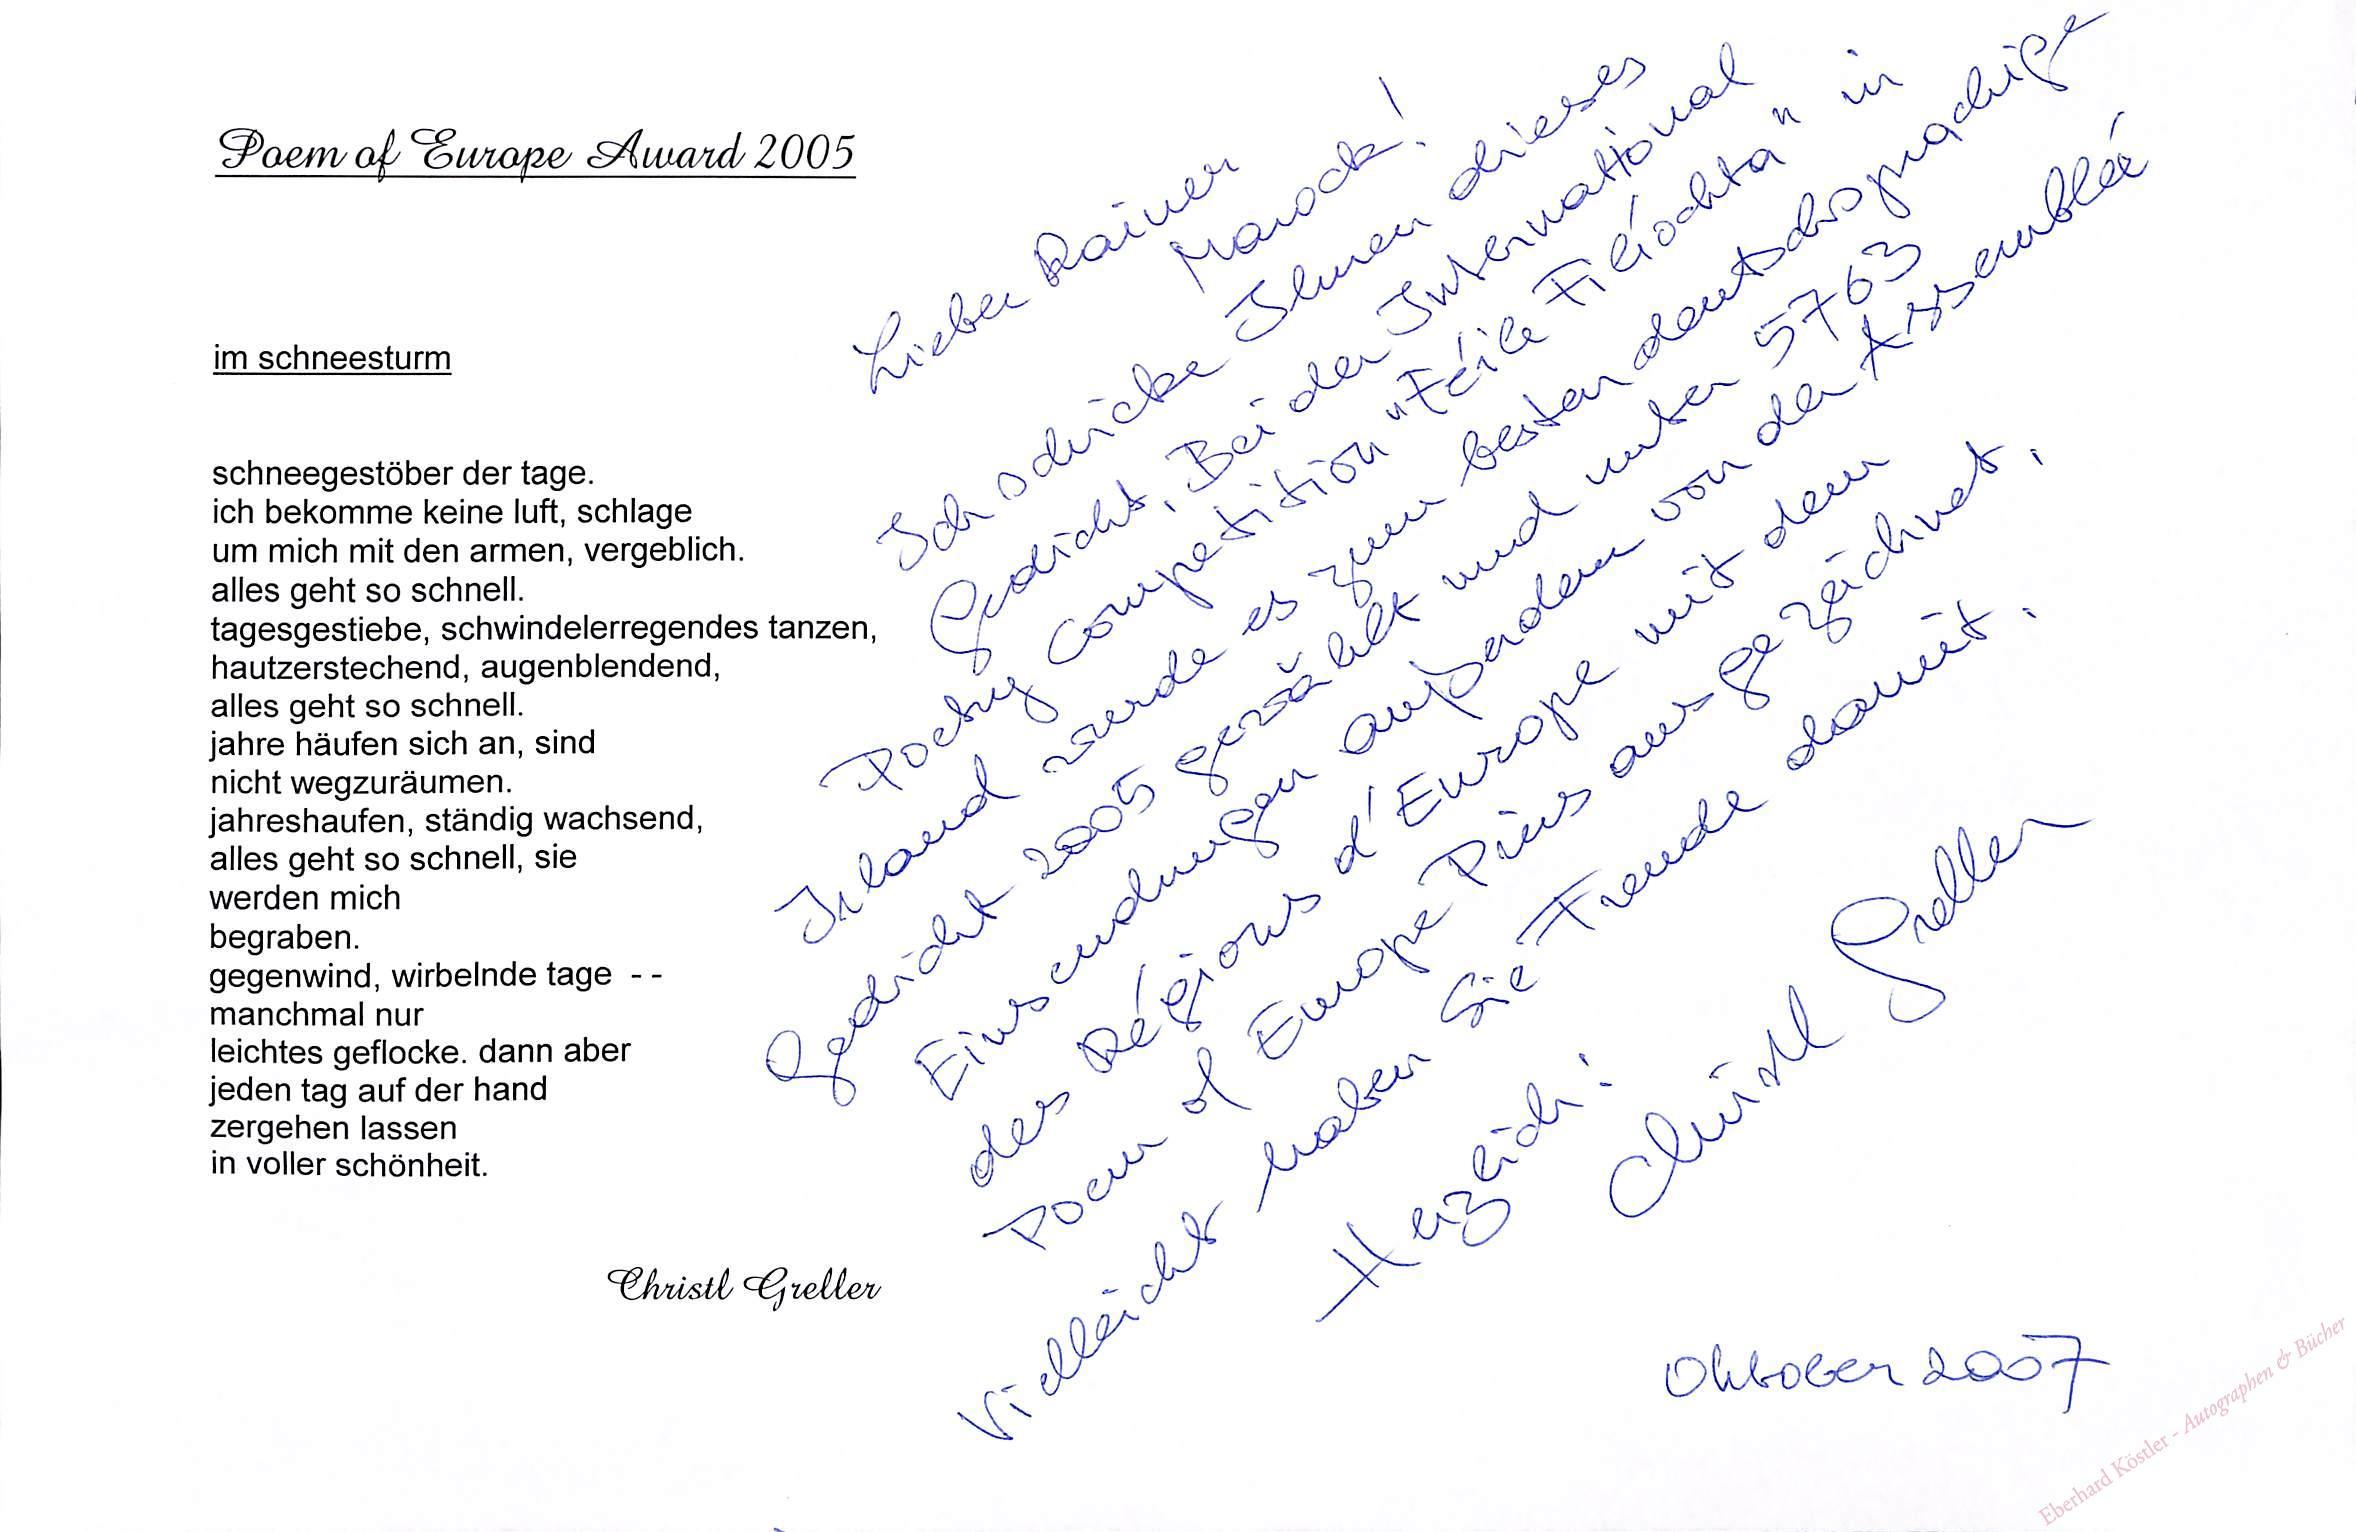 Poem of Europe Award 2005
im schneesturm
schneegestöber der tage.
ich bekomme keine luft, schlage
um mich mit den armen, vergeblich.
alles geht so schnell.
tagesgestiebe, schwindelerregendes tanzen,
hautzerstechend, augenblendend,
alles geht so schnell.
jahre häufen sich an, sind
nicht wegzuräumen.
jahreshaufen, ständig wachsend,
alles geht so schnell, sie
werden mich
begraben.
gegenwind, wirbelnde tage - -
manchmal nur
leichtes geflocke. dann aber
jeden tag auf der hand
zergehen lassen
in voller schönheit.
Christl Greller
Lieber Rainer
!
Ich schicke Ihnen dieses
Gedicht. Bei der International
Poetry Competition "Féile Filíochta" in
Irland wurde es zum besten deutschsprachige
Gedicht 2005 gewählt und unter 5763
Einsendungen außerdem von der Assemblée
des Régions d'Europe mit dem
Poem of Europe Preis ausgezeichnet.
Vielleicht haben Sie Freude damit.
Herzlich:
Christl Greller
Oktober 2007
Eberhard Köstler - Autographen & Bücher